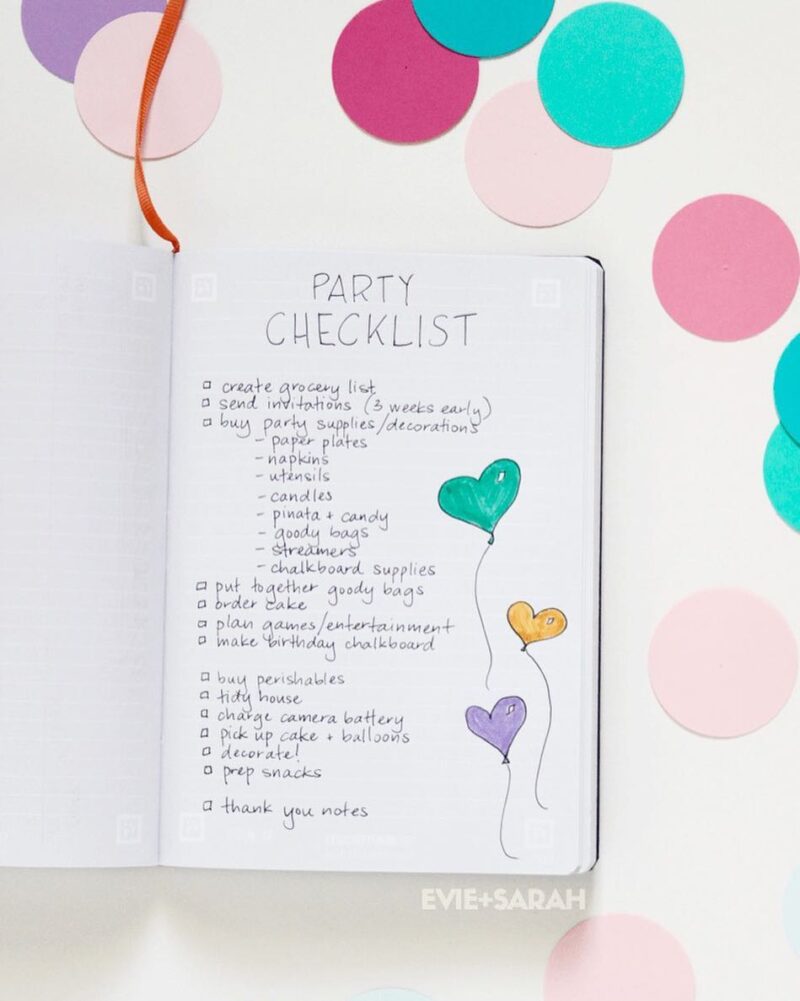 PARTY
CHECKLIST
create grocery list
send invitations (3 weeks early)
buy party supplies/decorations
- paper plates
- napkins
- utensils
- candles
- pinata + candy
- goody bags
- streamers
- chalkboard supplies
put together goody bags
order cake
plan games/entertainment
make birthday chalkboard
buy perishables
tidy house
charge camera battery
pick up cake + balloons
decorate!
prep snacks
thank you notes
EVIE+SARAH